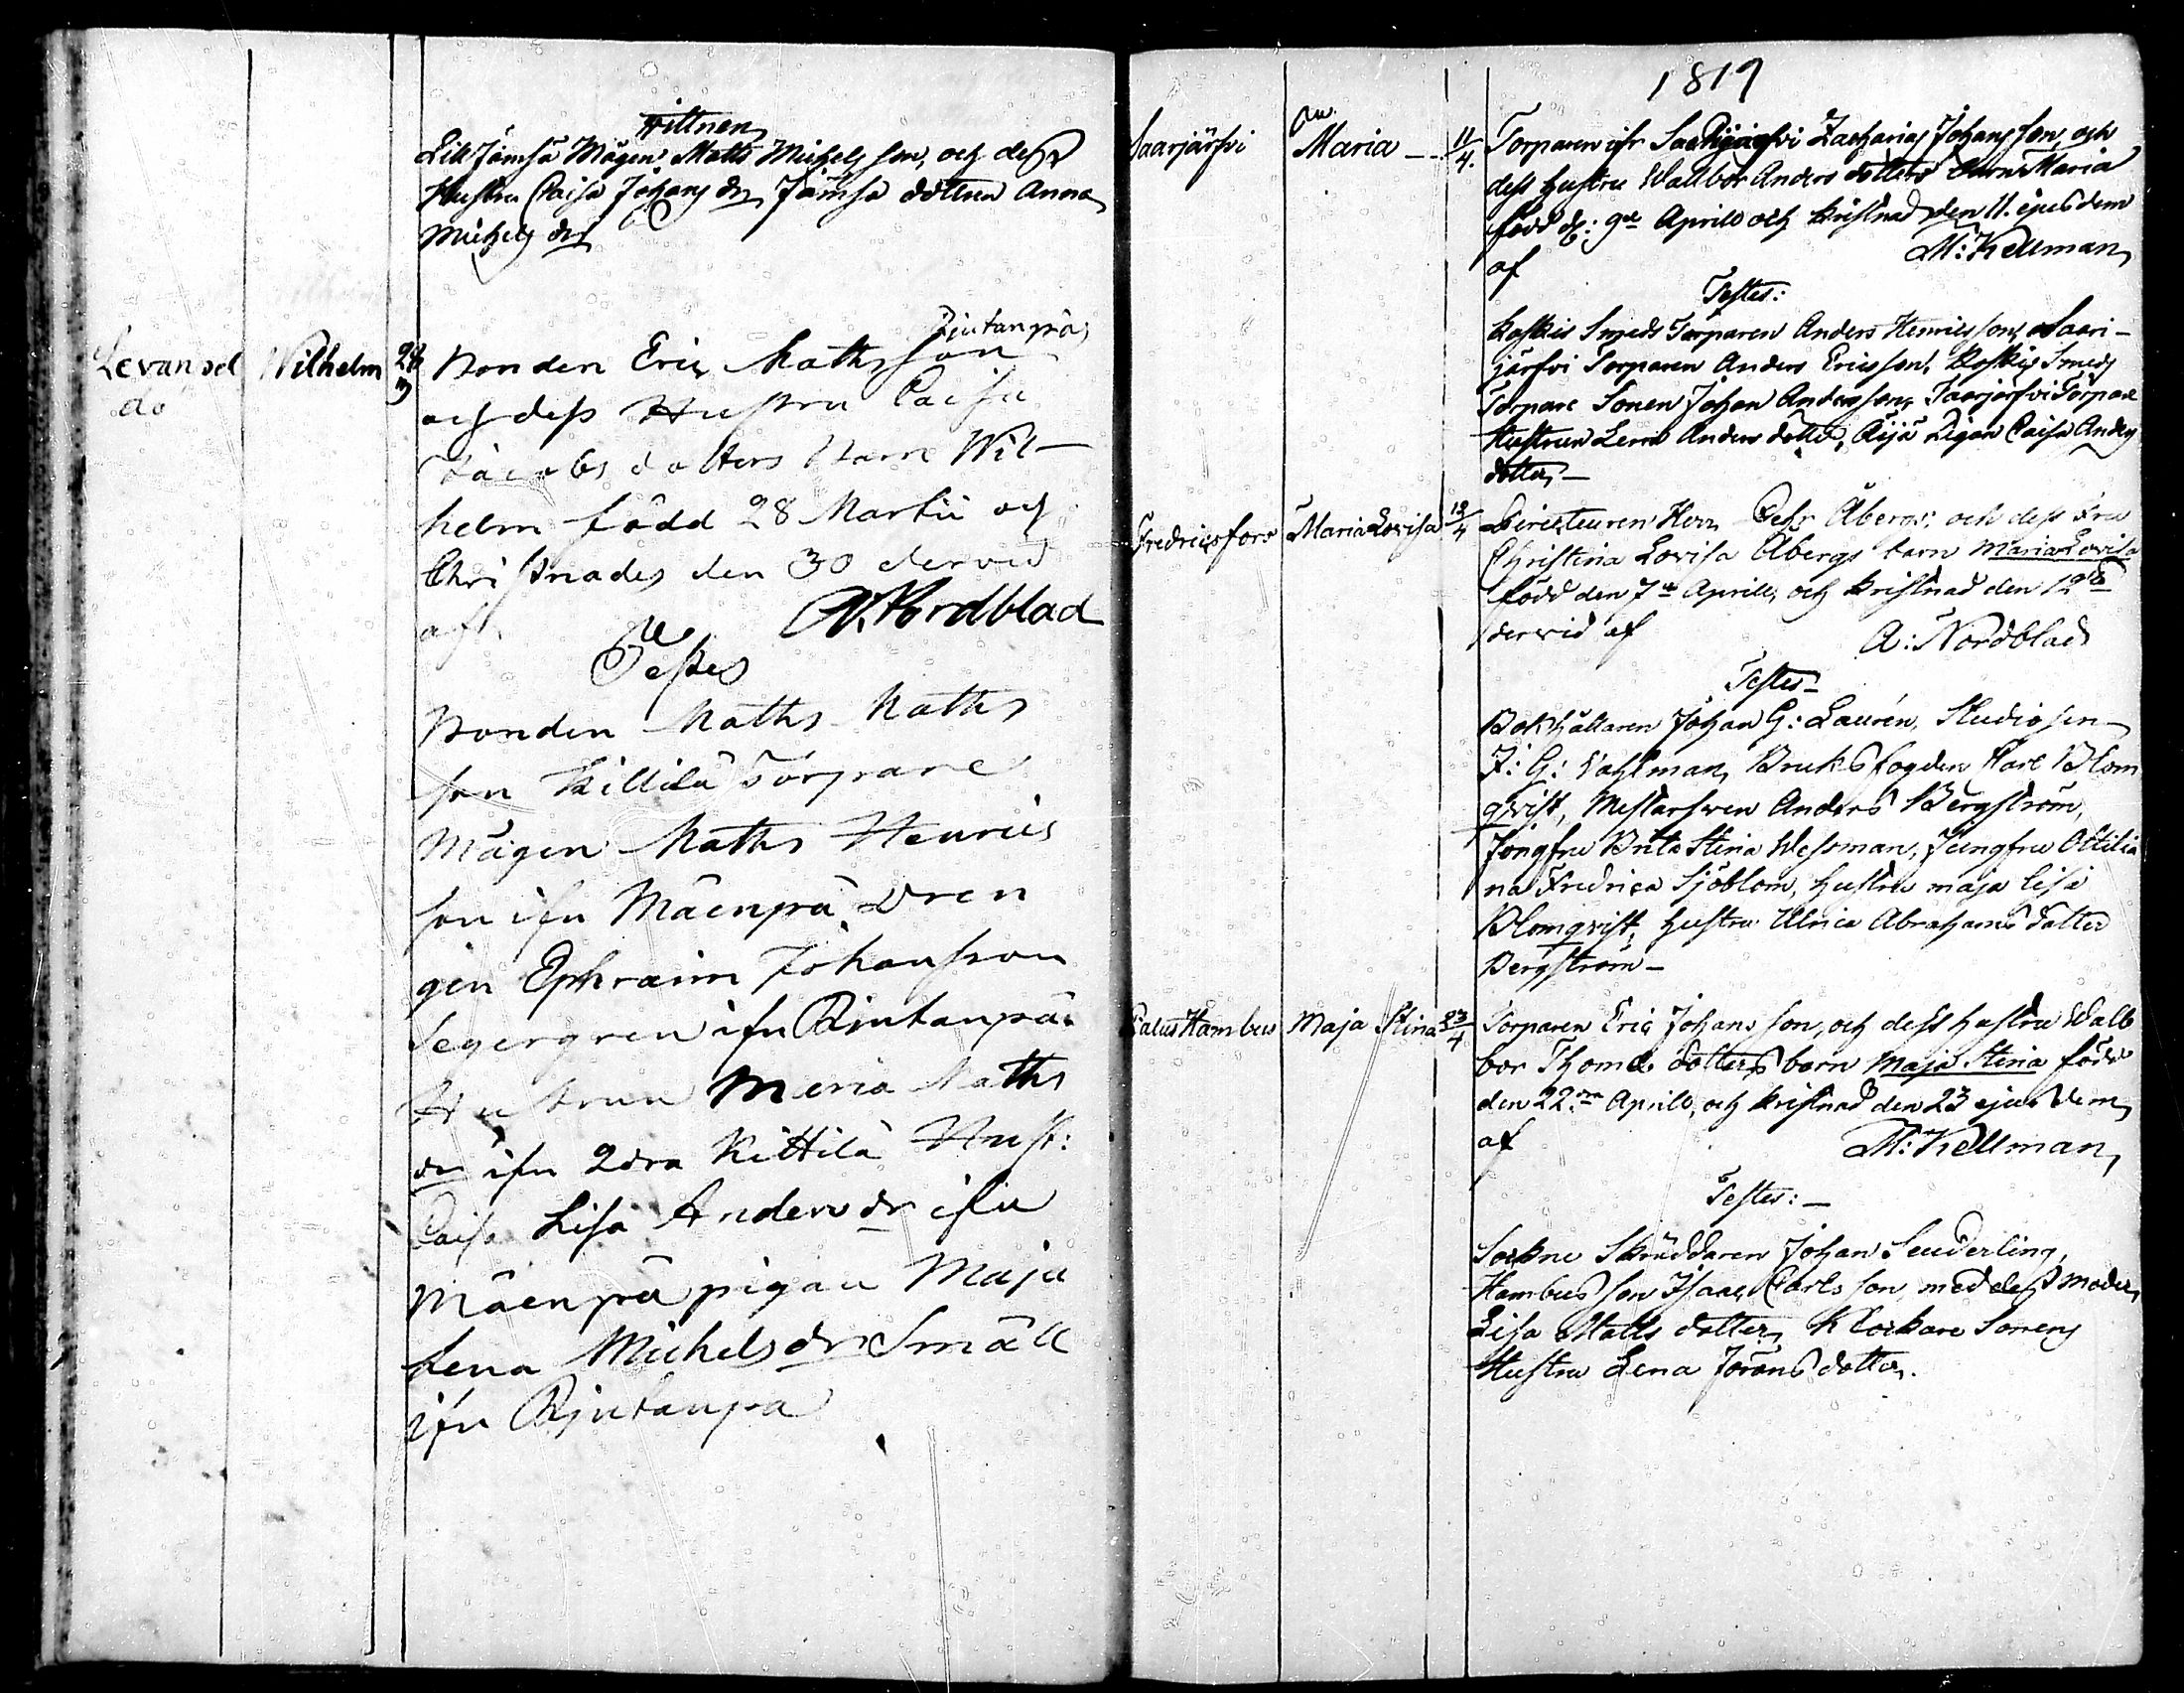 Wittnen
Lill Jämsä Mågen Matts Michelsson, och dess
Hustru Caisa Johans dr, Jämsä dottren Anna
Michels dr
Rjutanpää
Levansel Wilhelm 28/3 Bonden Eric Mathsson
do och dess Hustru Caisa
Jacobs dotters Barn Wil-
helm född 28 Martii och
Christnades den 30 dervid
af A. Nordblad
Testes
Bonden Maths Maths
son Kittilä Torpare
Mågen Maths Henrics
son ifrn Mäenpä Dren
gen Ephraim Johansson
Segergren ifrn Rjutanpää
Hustrun Maria Maths
dr ifrn 2dra Kittilä Hust:
Caisa Lisa Anders dr ifrn
Mäenpä pigan Maja
Lena Michels dr Smäll
ifrn Rjutanpä
1819
Saarjärfvi Maria - 11/4. Torparen ifr Saarijärfvi Zacharias Johansson, och
dess hustru Wallbor Anders dotters barn Maria
född d: 9de Aprill och kristnad den 11. ejusdem
af M: Kellman
Testes:
Koskis Smeds Torparen Anders Henricsson, Saari-
järfvi Torparen Anders Ericsson, Koskis Smeds
Torpare Sonen Johan Andersson, Saarjärfvi Torpare
Hustrun Lena Anders dotter, Äijä Pigan Caisa Anders
dotter,-
Fredricsfors Maria Lovisa 12/4 Directeuren Herr Pehr Åberg, och dess Fru
Christina Lovisa Åbergs barn Maria Lovisa
född den 7de Aprill, och kristnad den 12te
dervid af A: Nordblad
Testes-
Bokhållaren Johan G: Laurén, Studiosen
J: G: Vahlman, Bruksfogden Carl Blom
qvist, Mestarsven Anders Bergström,
Jungfru Brita Stina Wessman, Jungfru Ottilia
na Fredrica Sjöblom, hustru Maja Lisa
Blomqvist, hustru Ulrica Abrahams dotter
Bergström-
Salus Hambus Maja Stina 23/4 Torparen Eric Johans son, och dess hustru Walb
bor Thomæ dotters barn Maja Stina född
den 22. Aprill, och kristnad den 23 ejusdem,
af M: Kellman,
Testes:-
Sockne Skräddaren Johan Senderling,
Hambus son Isaac Carls son, med dess moder
Lisa Matts dotter, Klockare Sonens
Hustru Lena Jöransdotter.